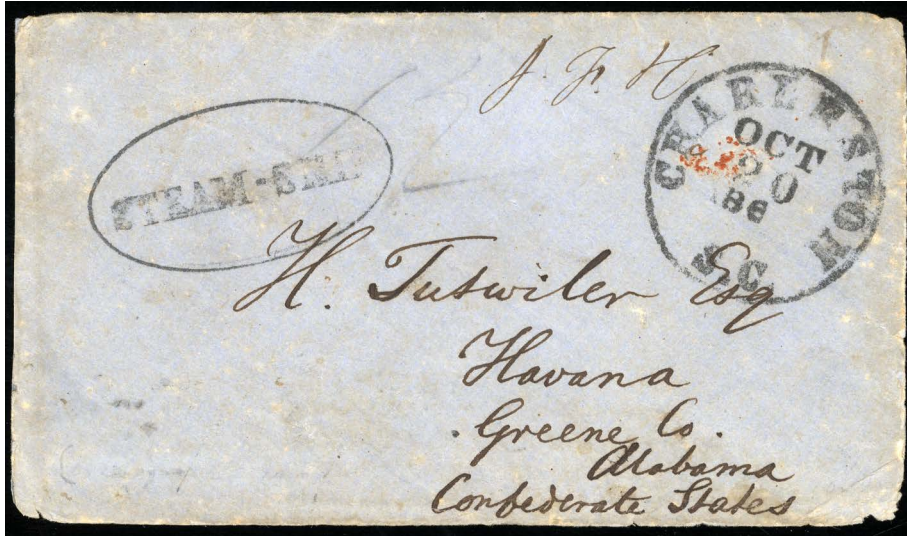 J. F. H.
STEAM-SHIP
CHARLESTON
OCT
20
186
S.C.
H. Tutwiler Esq
Havana
Greene Co.
Alabama
Confederate States